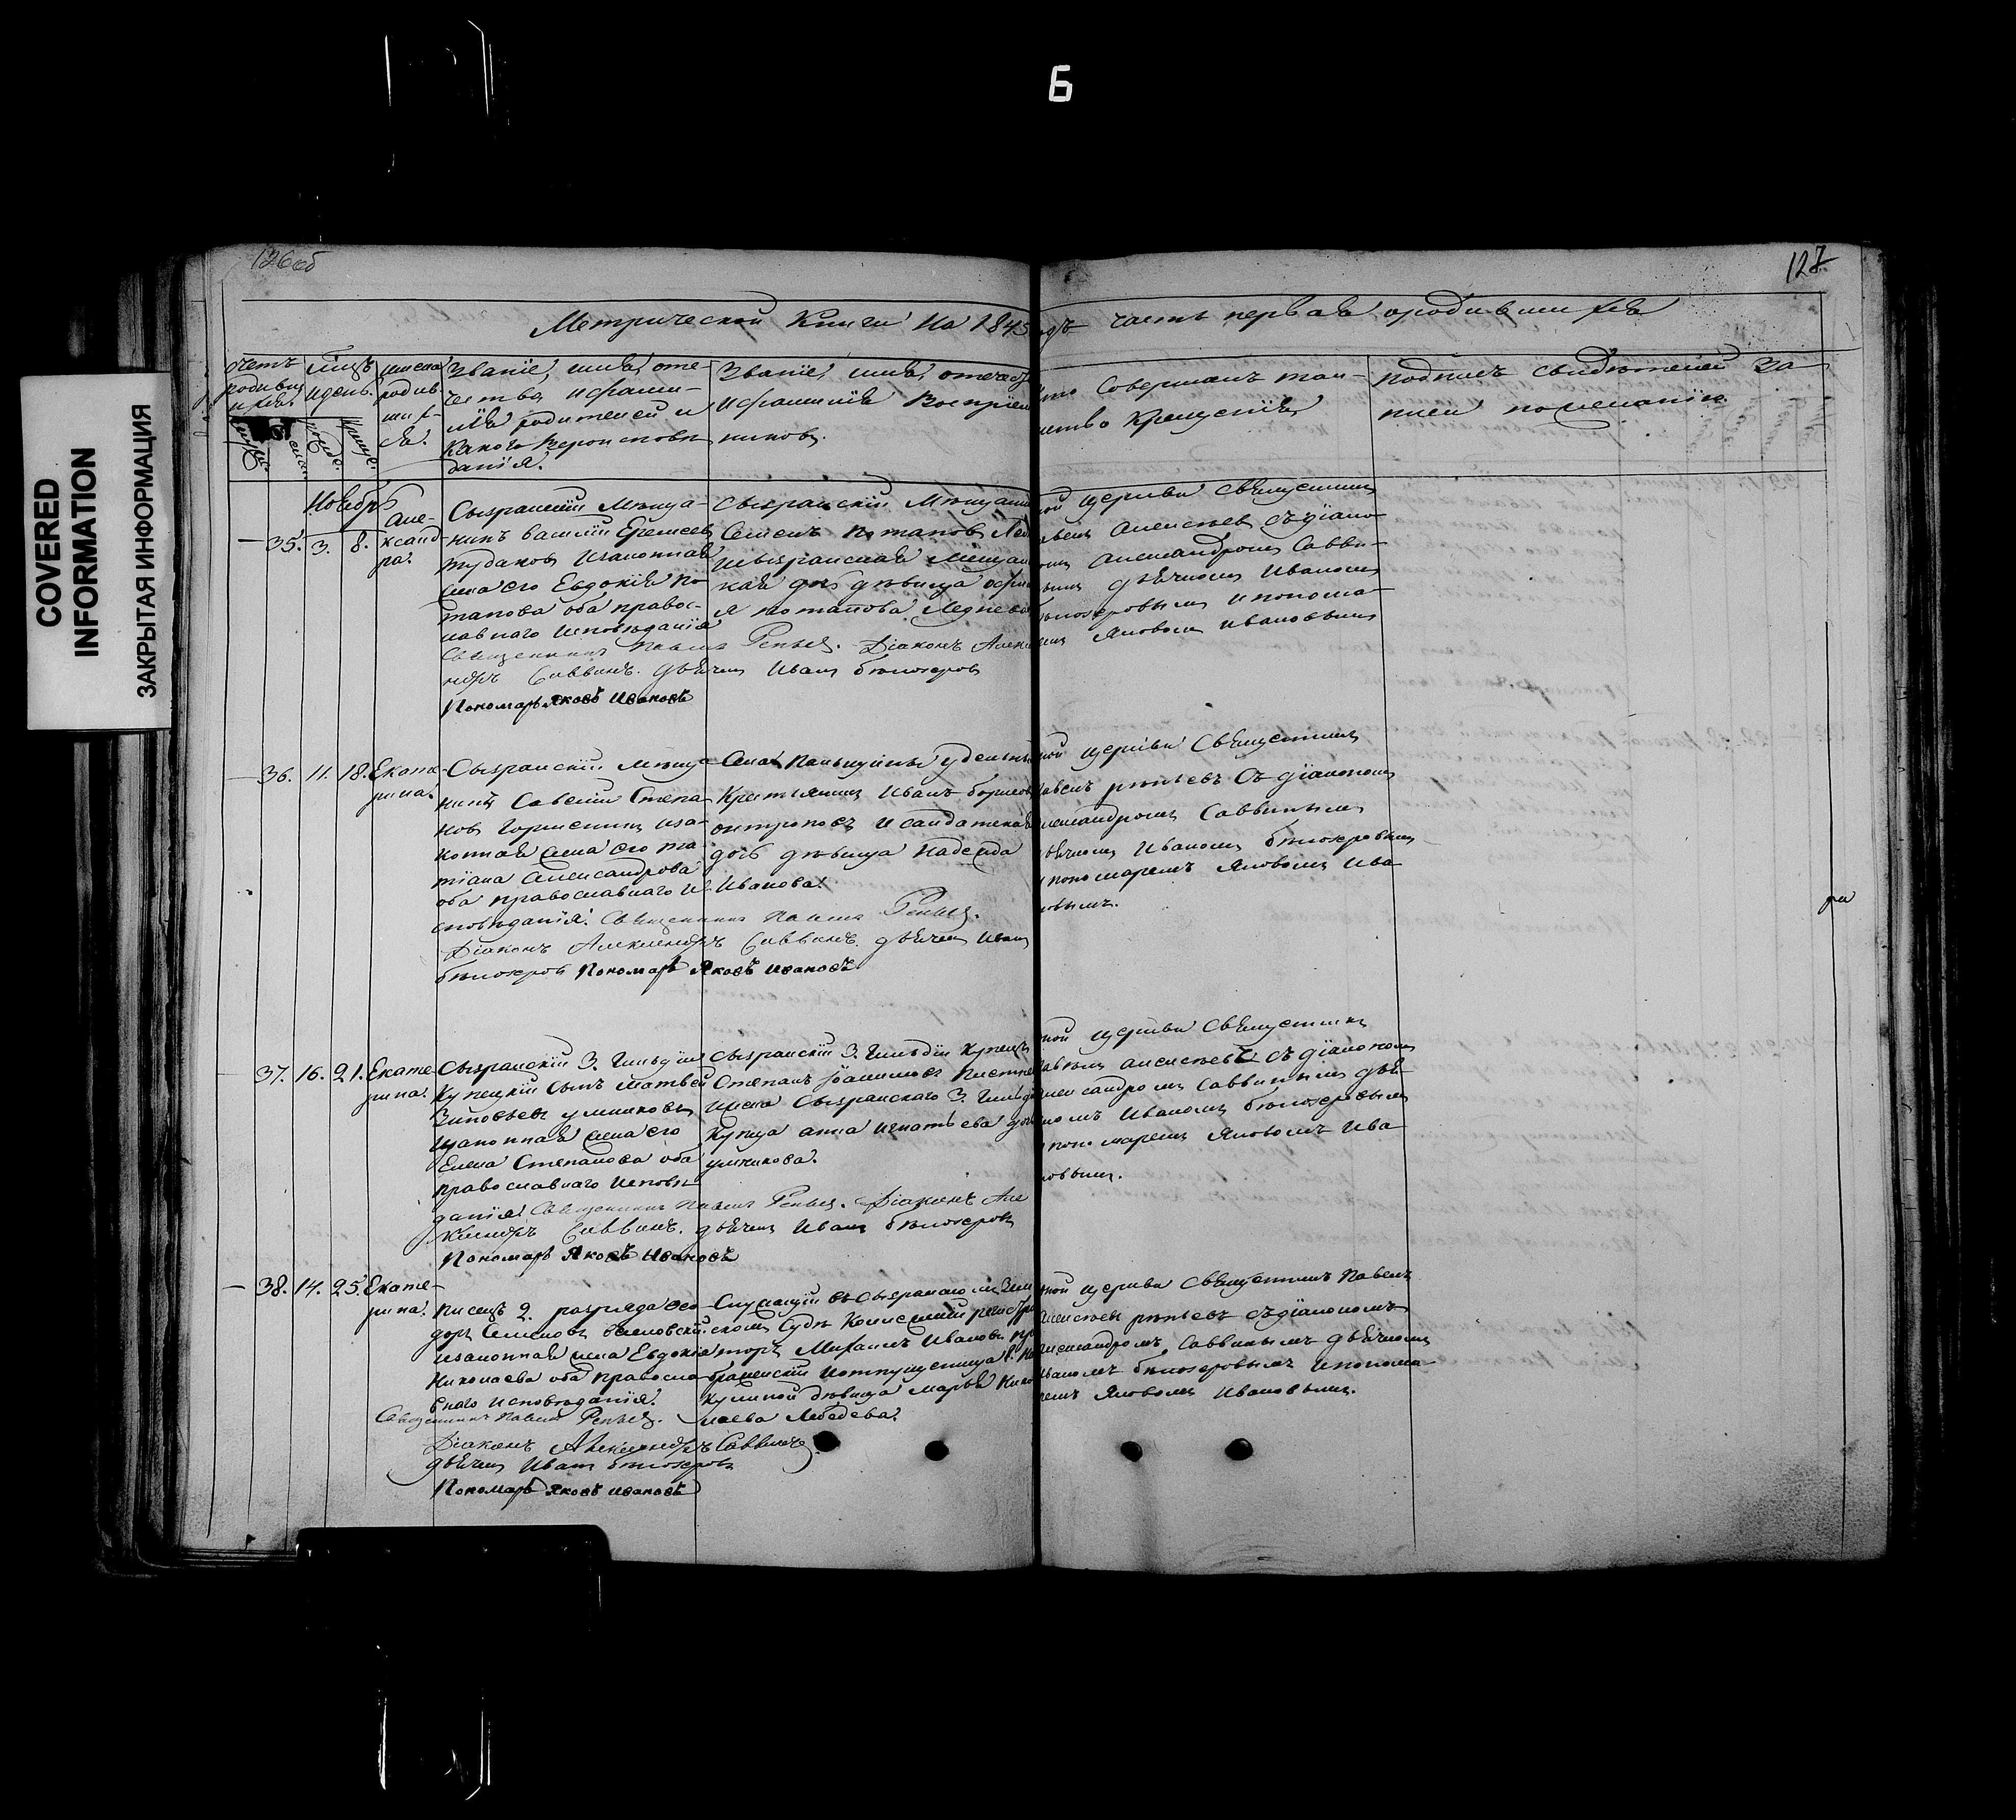 6
COVERED
INFORMATION
ЗАКРЫТАЯ ИНФОРМАЦИЯ
126 об
127
Метрической Книги на 1845 годъ часть первая о родившихся
Званіе, имя, отечество, и фамилія родителей и какого вероисповѣданія.
Званіе, имя, отечес
и фамилія Воспріем
никовъ.
кто Совершалъ таи-
нство Крещенія
подписъ свидѣтелей за
писи по желанію
Ноябрь
35. 3. 8. Але-
ксанд-
ра.
Сызранскій Мѣща-
нинъ Василій Ереѳеев
законная
жена его Евдокія По-
тапова оба правос-
лавнаго исповѣданія
Сызранскій Мѣщани
Семенъ Потаповъ
и сызранская Мѣщан
кая дочь дѣвица
я Потапова
ной церкви Священникъ
Алексѣев съ діако-
номъ Александромъ Савви-
нымъ дьячкомъ Иваномъ
Бѣлозеровымъ и понома-
Яковомъ Ивановымъ
Священникъ Павелъ Репьевъ. Діаконъ Алекса
ндръ Саввинъ. дьячекъ Иванъ Бѣлозеровъ
Пономарь Яковъ Ивановъ
36. 11. 18. Екате-
рина.
Сызранскій мѣща-
нинъ Савелій Степа-
новъ за-
конная жена его та-
тіана Александрова
оба православнаго и-
сповѣданія.
Села удельный
Крестьянинъ Иванъ Борисов
и салдатская
дочь дѣвица Надежда
Иванова.
ной церкви Священникъ
Павелъ рѣпьевъ Съ діакономъ
Александромъ Саввинымъ
дьячкомъ Иваномъ Бѣлозеровымъ
и пономаремъ Яковомъ Ива
новымъ.
Священникъ Павелъ Репьевъ.
Діаконъ Александръ Саввинъ. дьячекъ Иванъ
Бѣлозеровъ Пономарь Яковъ Ивановъ
37. 16. 21. Екате-
рина.
Сызранскій 3. Гильдіи
Купецкій Сынъ Матвей
Зиновьевъ
законная жена его
Елена Степанова оба
православнаго исповѣ
данія.
Сызранскій 3. Гильдіи Купецъ
Степанъ
Сызранскаго 3. Гильді
Купца анна Игнатьева
ной церкви Священникъ
Павелъ алексѣевъ съ діакономъ
Александромъ Саввинымъ дья-
чкомъ Иваномъ Бѣлозеровымъ
и пономаремъ Яковомъ Ива
новымъ.
Священникъ Павелъ Репьевъ. Діаконъ Але
ксандръ Саввинъ. дьячекъ Иванъ Бѣлозеровъ
Пономарь Яковъ Ивановъ
38. 14. 25. Екате-
рина.
Писецъ 2. разряда Ѳео-
доръ Семеновъ
законная жена Евдокія
Николаева оба правосла
внаго исповѣданія.
Служащій въ Сызранскомъ Зем
скомъ Судѣ Колежскій регистра
торъ Михаилъ Ивановъ
дѣвица Марья Нико
лаева Лебедева.
ной церкви Священникъ Павелъ
Алексѣевъ рѣпьевъ съ діакономъ
Александромъ Саввинымъ дьячкомъ
Иваномъ Бѣлозеровымъ и понома
ремъ Яковомъ Ивановымъ.
Священникъ Павелъ Репьевъ.
Діаконъ Александръ Саввинъ.
дьячекъ Иванъ Бѣлозеровъ
Пономарь Яковъ Ивановъ